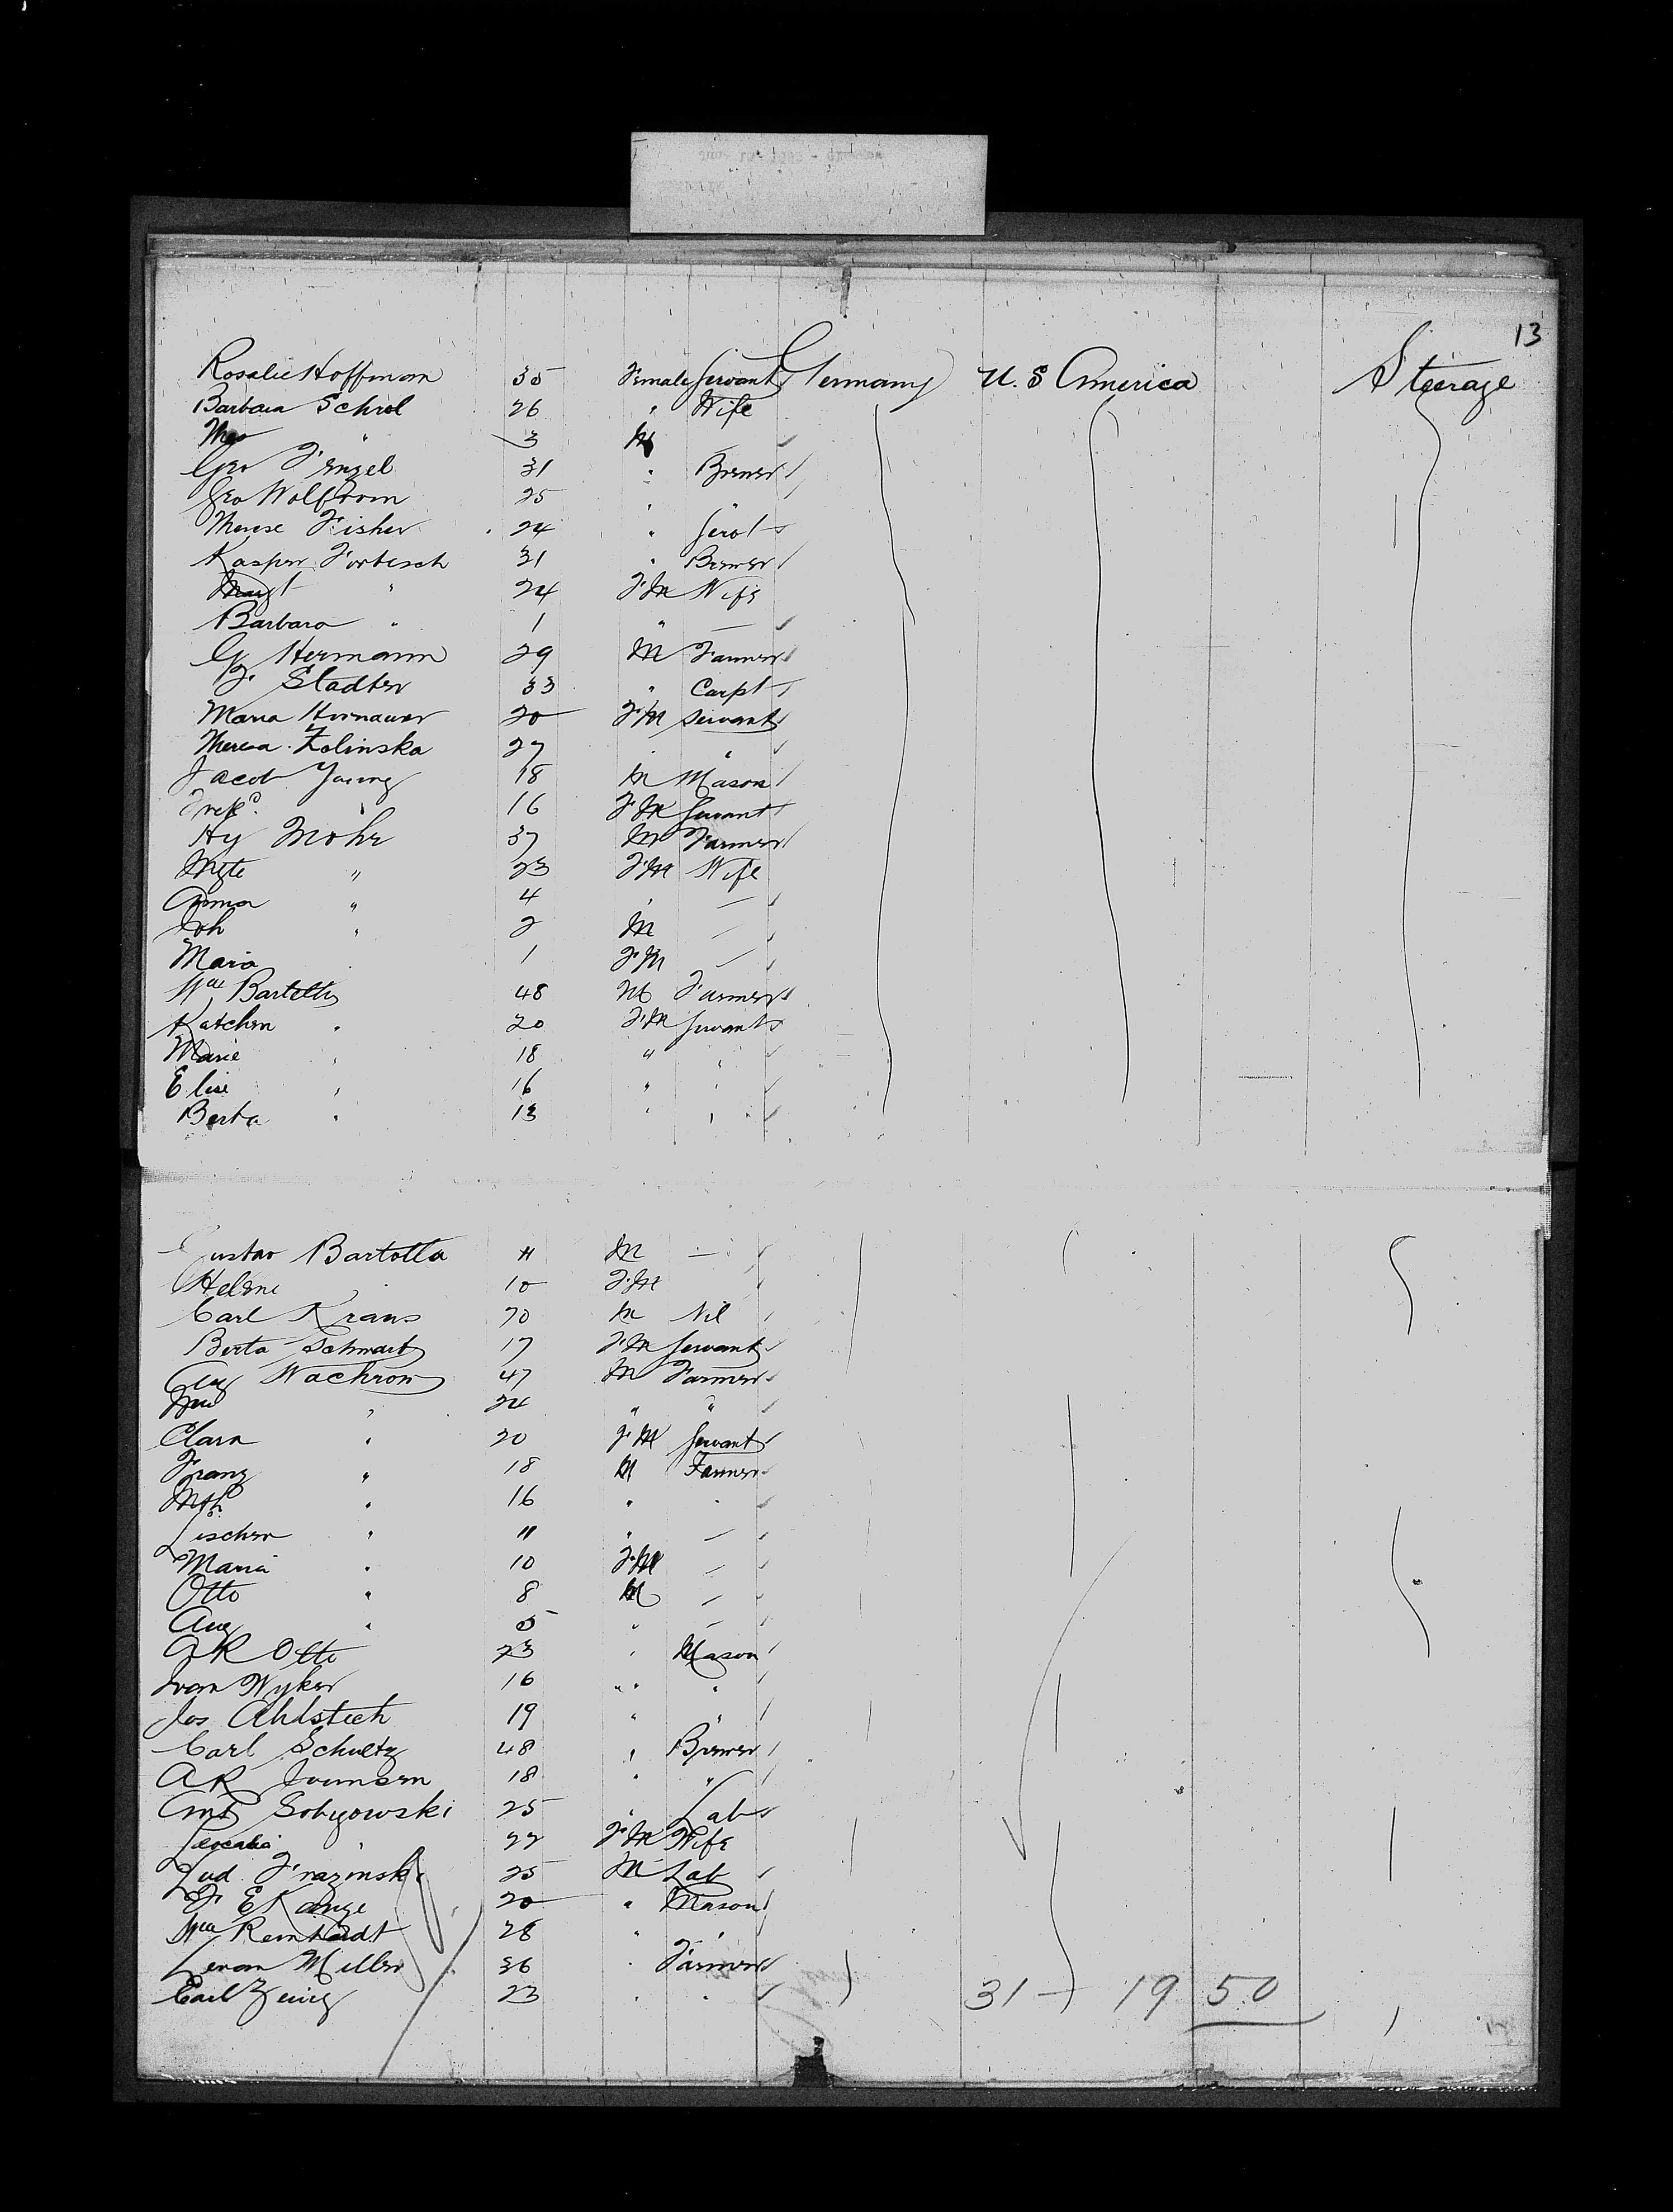 13
Rosalie Hoffmann 35 Female Servant Germany U.S America Steerage
Barbara Schrol 26 " Wife
" 3 M
Geo Fenzel 31 " Brewer
Geo Wolfrom 25 " "
Therese Fisher 24 " Servt
Kasper Fortesch 31 " Brewer
Margt " 24 FM Wife
Barbara " 1 " —
G Hermann 29 M Farmer
F Stadter 33 " Carpt
Maria Hornauer 20 FM Servant
Theresa Zolinska 27 " "
Jacob Young 18 M Mason
" 16 FM Servant
Hy Mohr 37 M Farmer
Mgte " 23 FM Wife
Anna " 4 " —
Joh " 2 M —
Maria 1 FM —
Wm Bartelts 48 M Farmer
Katchen " 20 FM Servant
Marie " 18 " "
Elise " 16 " "
Berta " 13 " "
Gustav Bartolta 11 M —
Helene 10 FM
Carl Kraus 70 M Nil
Berta Schwartz 17 FM Servant
Aug Wachrow 47 M Farmer
" 24 " "
Clara " 20 FM Servant
Franz " 18 M Farmer
" 16 " "
Lischen " 11 " —
Maria " 10 FM —
Otto " 8 M —
Aug " 5 " —
A R Otto 23 " Mason
Ivan Wyker 16 " "
Jos Ahlstech 19 " "
Carl Schultz 48 " Brewer
A R Ivunsen 18 " "
Sobyowski 25 " Lab
" 22 FM Wife
Lud Frazinski 25 M Lab
F E Kange 20 " Mason
Wm Remhardt 28 " "
Leman Miller 36 " Farmer
Carl Zeing 23 " "
31 — 19 50